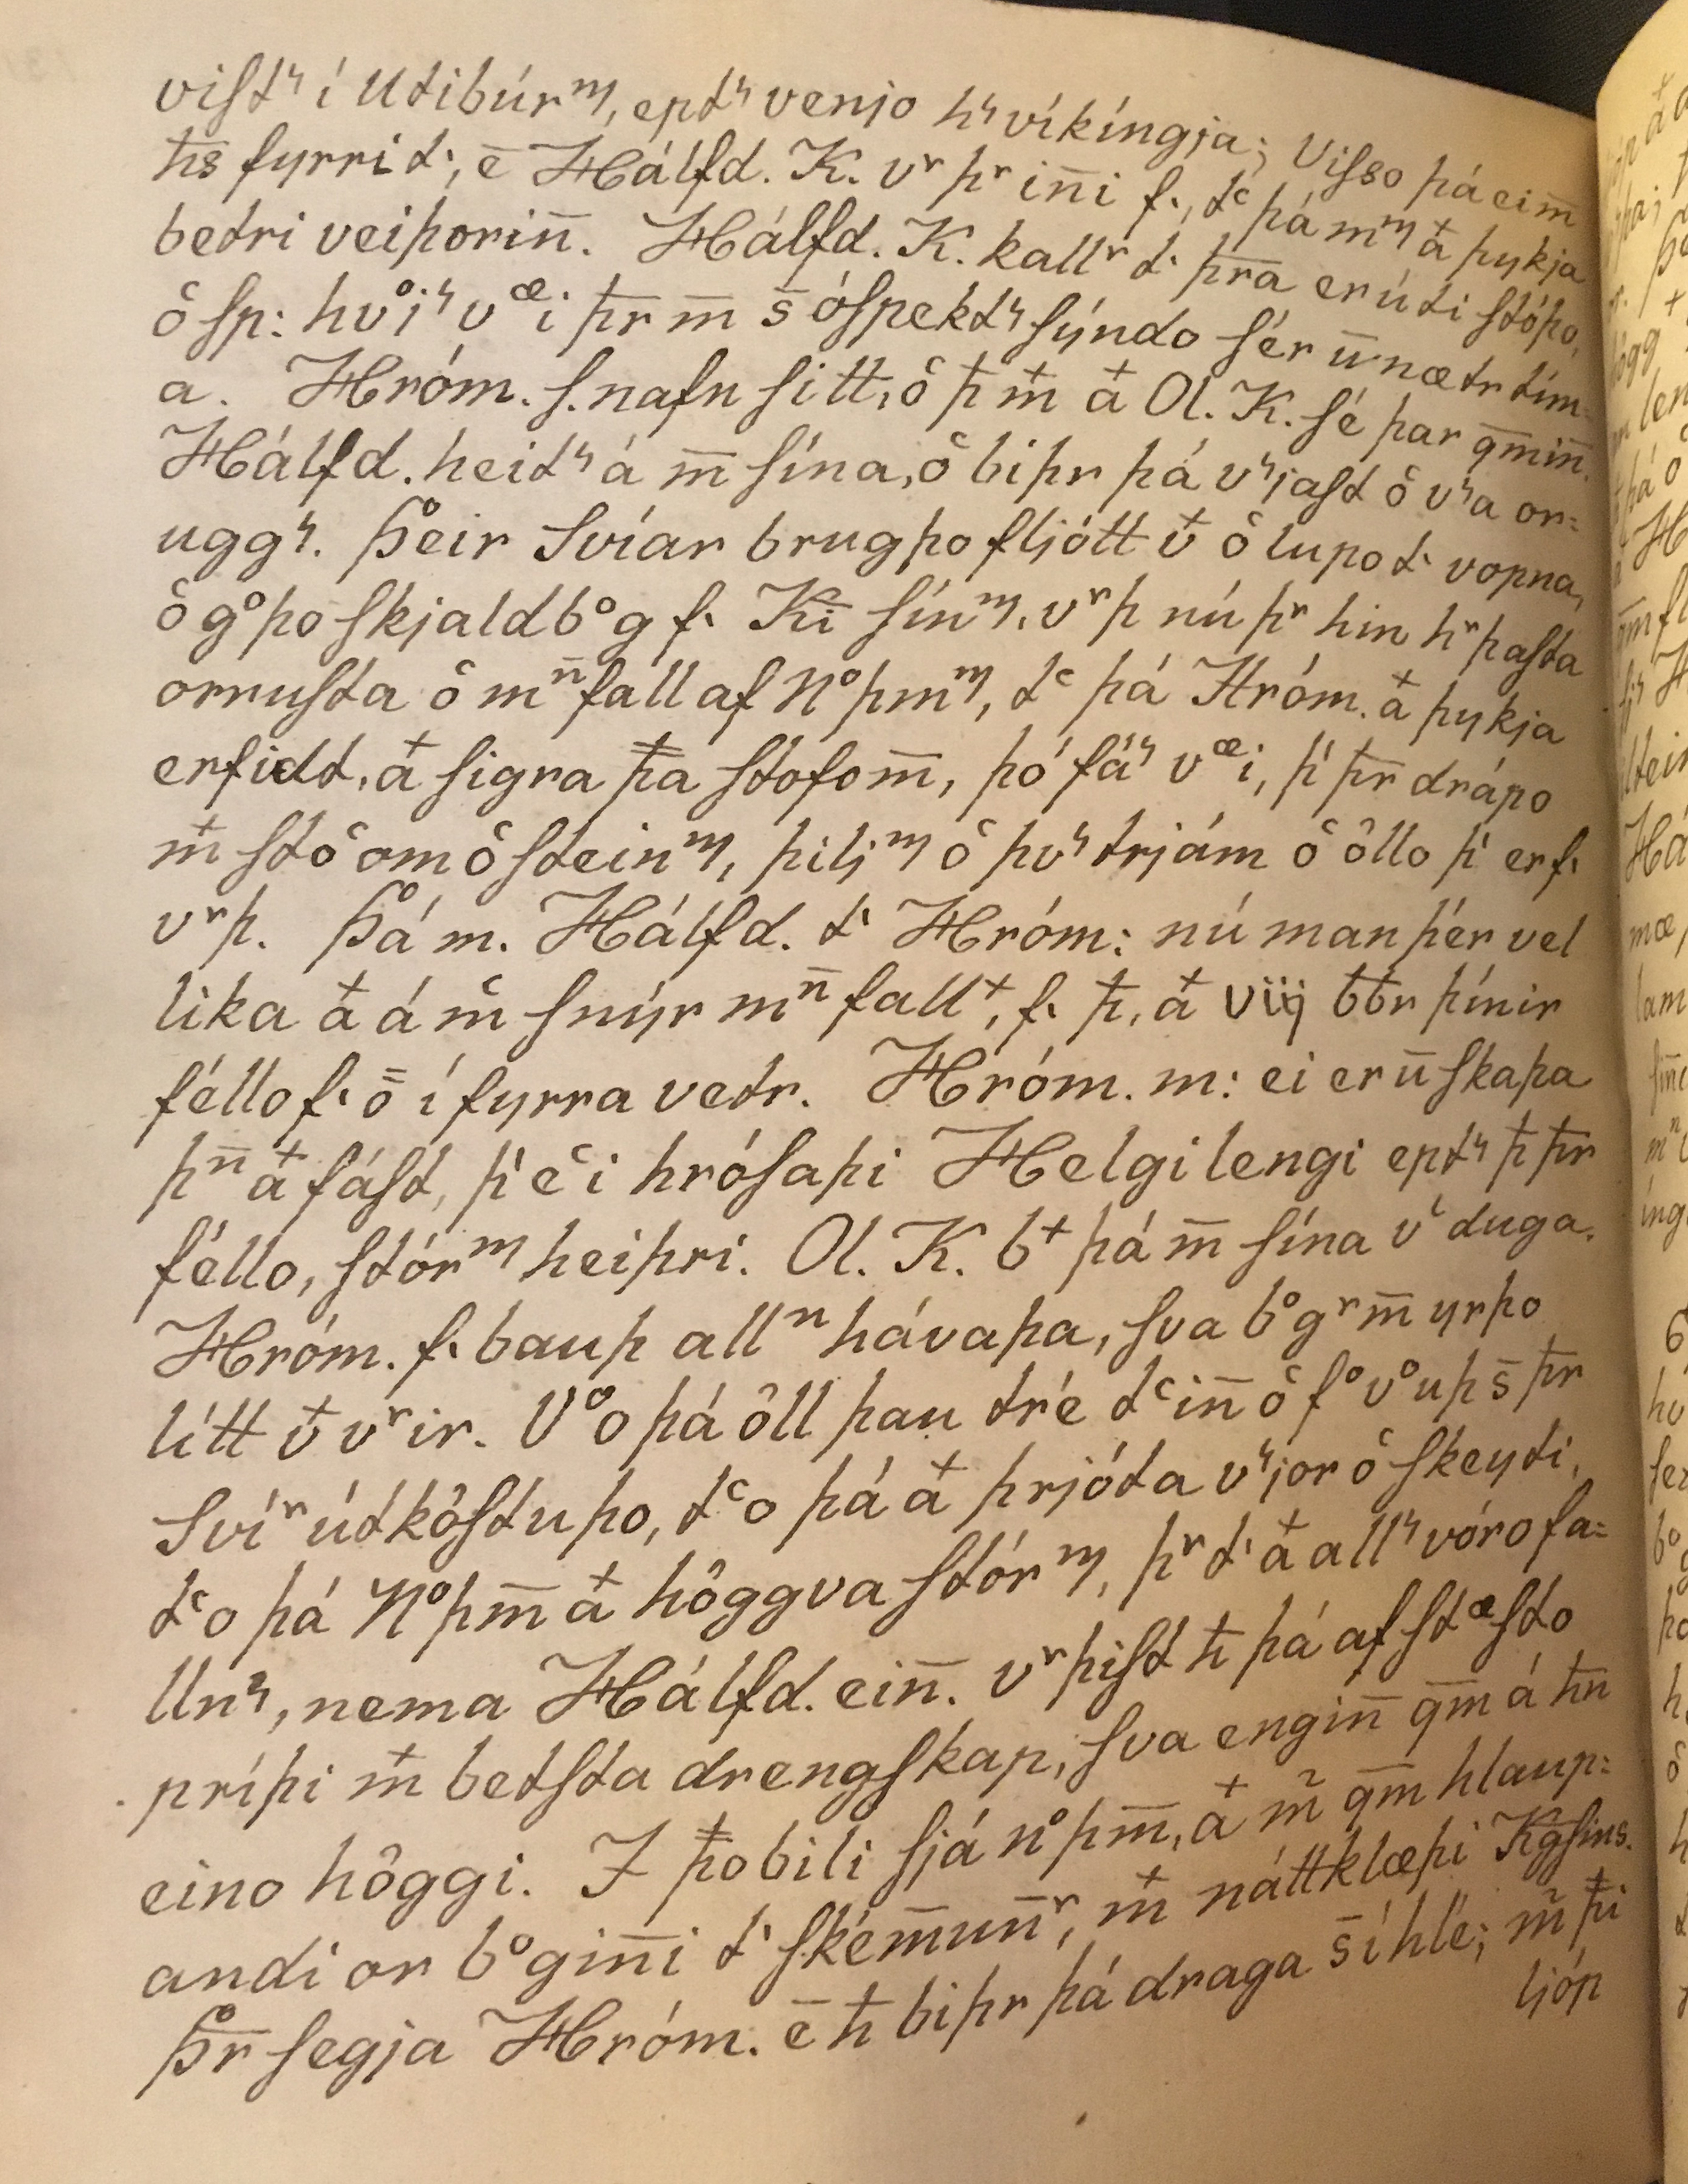 vistꝛ í Utibúrᵐ, eptꝛ venjo hꝛ víkíngja; Visso þá eim̅
h̅s fyrri tͥ, e̅ Hálfd. K. vʳ þʳ in̅i f., tᶜ þá mᵐ a᷄ þykja
betri veiþorin̅. Hálfd. K. kallʳ tͥ þr̅a er úti stóþo,
ô sp: hv͛iꝛ vᵆi þr̅ m̅ s̅ óspektꝛ sýndo sér u̅ nætr tím=
a. Hróm. s. nafn sitt, ô þ̵ m̵ a᷄ Ol. K. sé þar qm̅in̅.
Hálfd. heitꝛ á m̅ sína, ô biþr þá vꝛjast ô vꝛa or=
uggꝛ. Þeir Svíar brugþo fljótt v̵ ô lupo tͥ vopna,
ô gͦþo skjaldbͦg f. Ki̅ sínᵐ. vʳþ nú þʳ hin hʳþasta
orrusta ô mⁿ̅fall af Nͦþmᵐ, tᶜ þá Hróm. a᷄ þykja
erfidt, a᷄ sigra þ̵a stofom̅, þó fáꝛ vᵆi, þͥ þr̅ drápo
m̵ stôom ô steinᵐ, þiljᵐ ô þvꝛtrjám ô ôllo þͥ er f.
vʳþ. Þá m. Hálfd. tͥ Hróm: nú man þér vel
lika a᷄ á m̊ snýr mⁿ̅fall⁺, f. þ̵, a᷄ viij bb̅r þínir
féllo f. o̅ í fyrra vetr. Hróm. m: ei er u̅ skapa
þⁿ̅ a᷄ fást, þͥ eͨi hrósaþi Helgi lengi eptꝛ þ̵ þr̅
féllo, stórᵐ heiþri. Ol. K. b⁺ þá m̅ sína vͤ duga.
Hróm. f. bauþ allⁿ hávaþa, sva bͦgʳm̅ yrþo
lítt v̵ vʳir. Vͦo þá ôll þau tré tᶜin̅ ô fͦvͦuþ s̅ þr̅
Svíʳ útkôstuþo, tᶜo þá a᷄ þrjóta vꝛjor ô skeyti,
tᶜo þá Nͦþm̅ a᷄ hôggva stórᵐ, þʳ tͥ a᷄ allꝛ vóro fa=
llnꝛ, nema Hálfd. ein̅. vʳþist h̵ þá af stᵆsto
príþi m̵ betsta drengskap, sva engin̅ qm̅ á h̅n
eino hôggi. I þ̵o bili sjá nͦþm̅, a᷄ m̃ qm̅ hlaup=
andi or bͦgin̅i tͥ ském̅un̅ʳ, m̵ náttklæþi Kg̅sins.
Þr̅ segja Hróm. e̅ h̵ biþr þá draga s̅ í hlé; m̃ þ̵i
ljóp